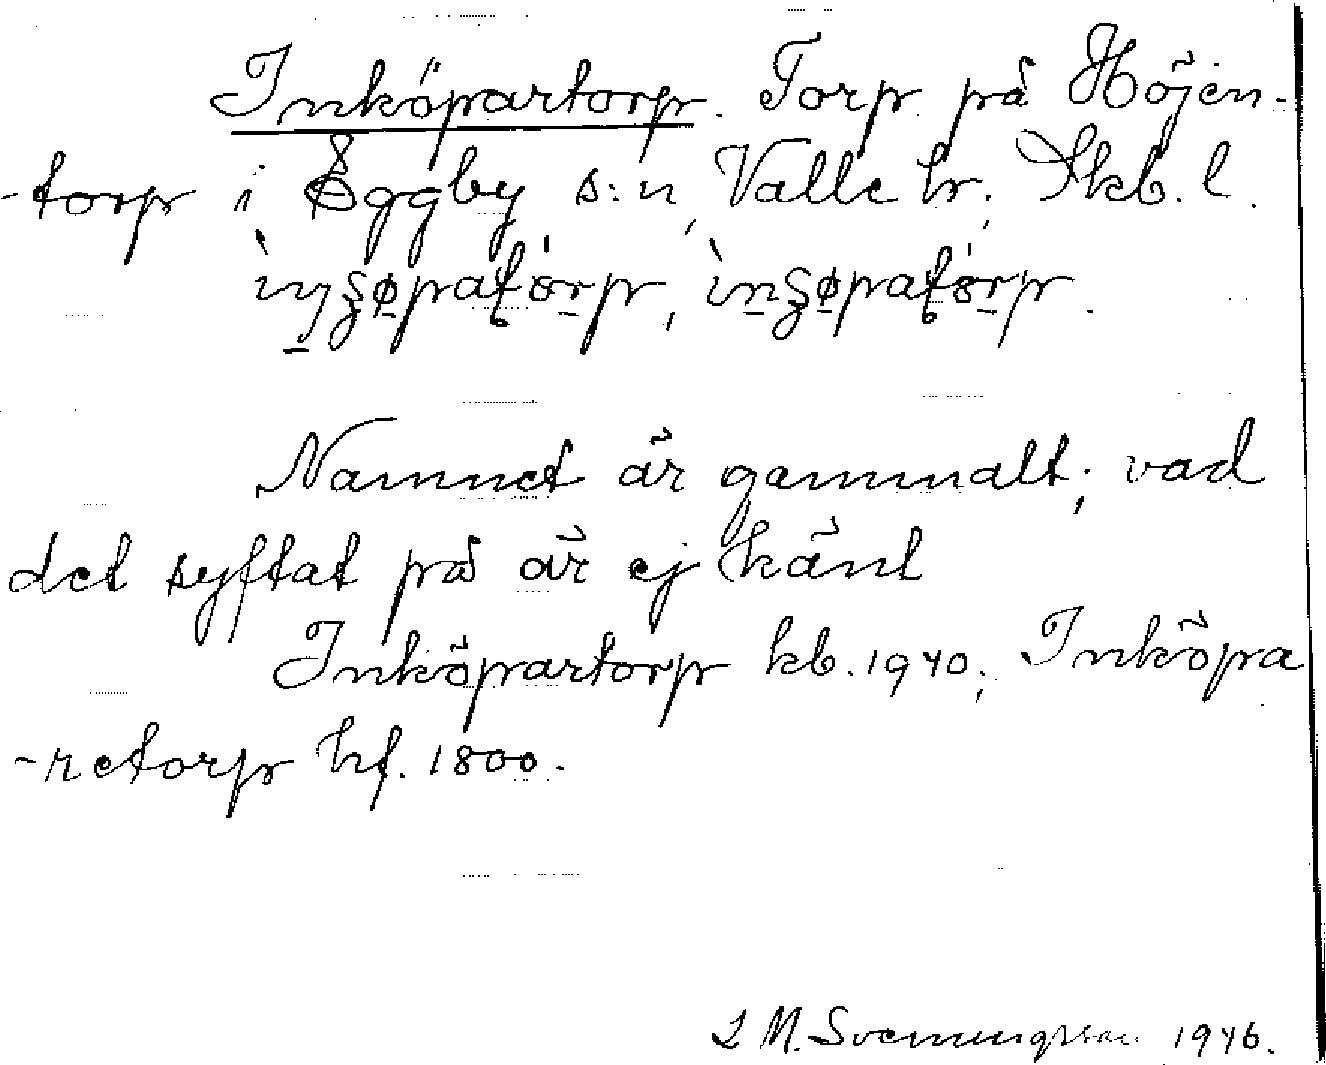 Inköpartorp. Torp på Höjen-
-torp i Eggby s:n, Valle hr; Skb. l.
Namnet är gammalt; vad
det syftat på är ej känt
Inköpartorp kb. 1940; Inköpa
-retorp hf. 1800.
L M. Svenungsson 1946.